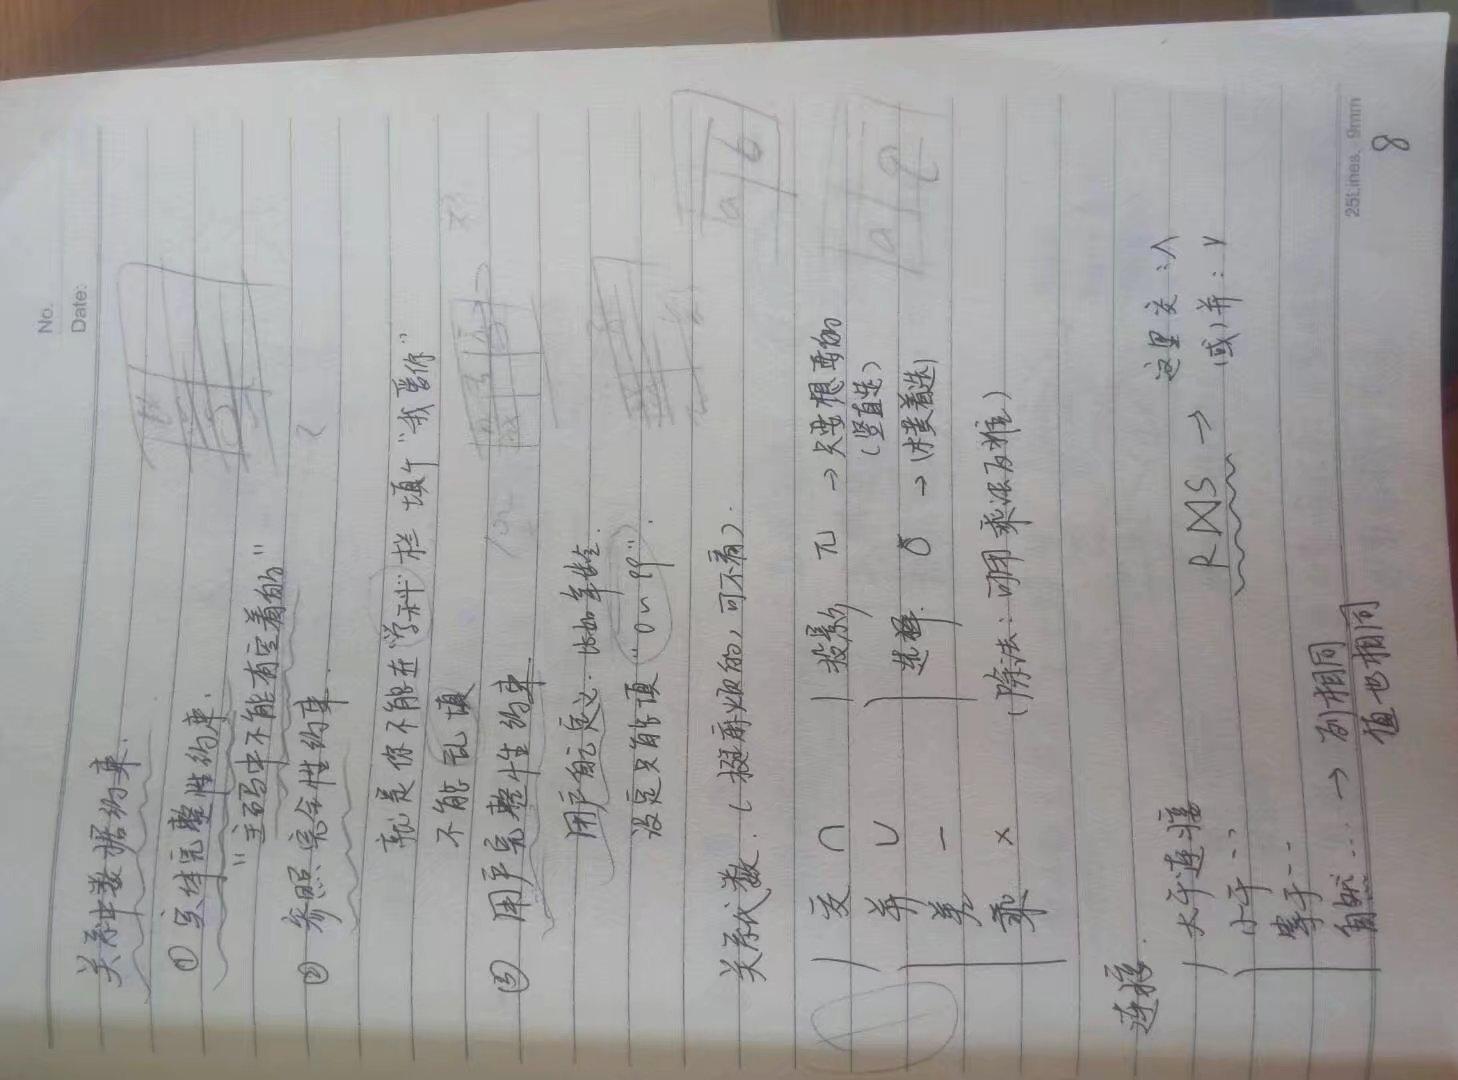 No.
Date:
关系中数据约束.
① 实体完整性约束.
"主码中不能有空着的"
② 参照完全性约束.
就是你不能在"学科"栏 填个"我爱你"
不能乱填
③ 用户完整性约束.
用户自己定义. 比如年龄.
设定只能填 "0~99".
关系代数. (挺麻烦的, 可不看).
交 ∩ 投影 π → 只要想要的
(竖直选)
并 ∪ 选择. δ → (横着选)
差 −
乘 × (除法: 可用乘法反推)
连接.
大于连接
小于 ···
等于 ···
自然 ···· → 列相同
值也相同
R⋈S →
这里交: ∧
(或)并: ∨
25Lines. 9mm
8